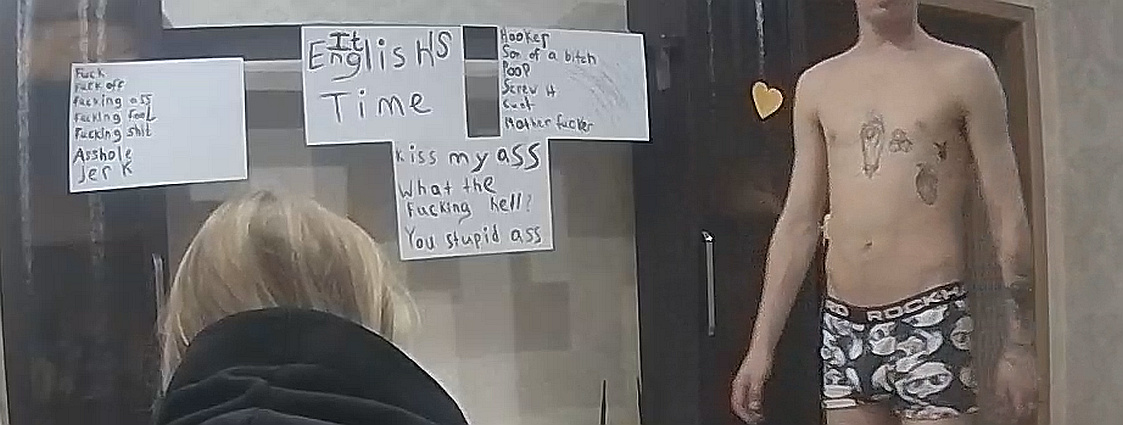 Fuck
Fuck off
Fucking ass
Fucking fool
Fucking shit
Asshole
Jerk
It
EnglisHS
Time
Hooker
Son of a bitch
Poop
Screw it
Cunt
Mother fucker
kiss my ass
What the
Fucking hell?
You stupid ass
ROCKH